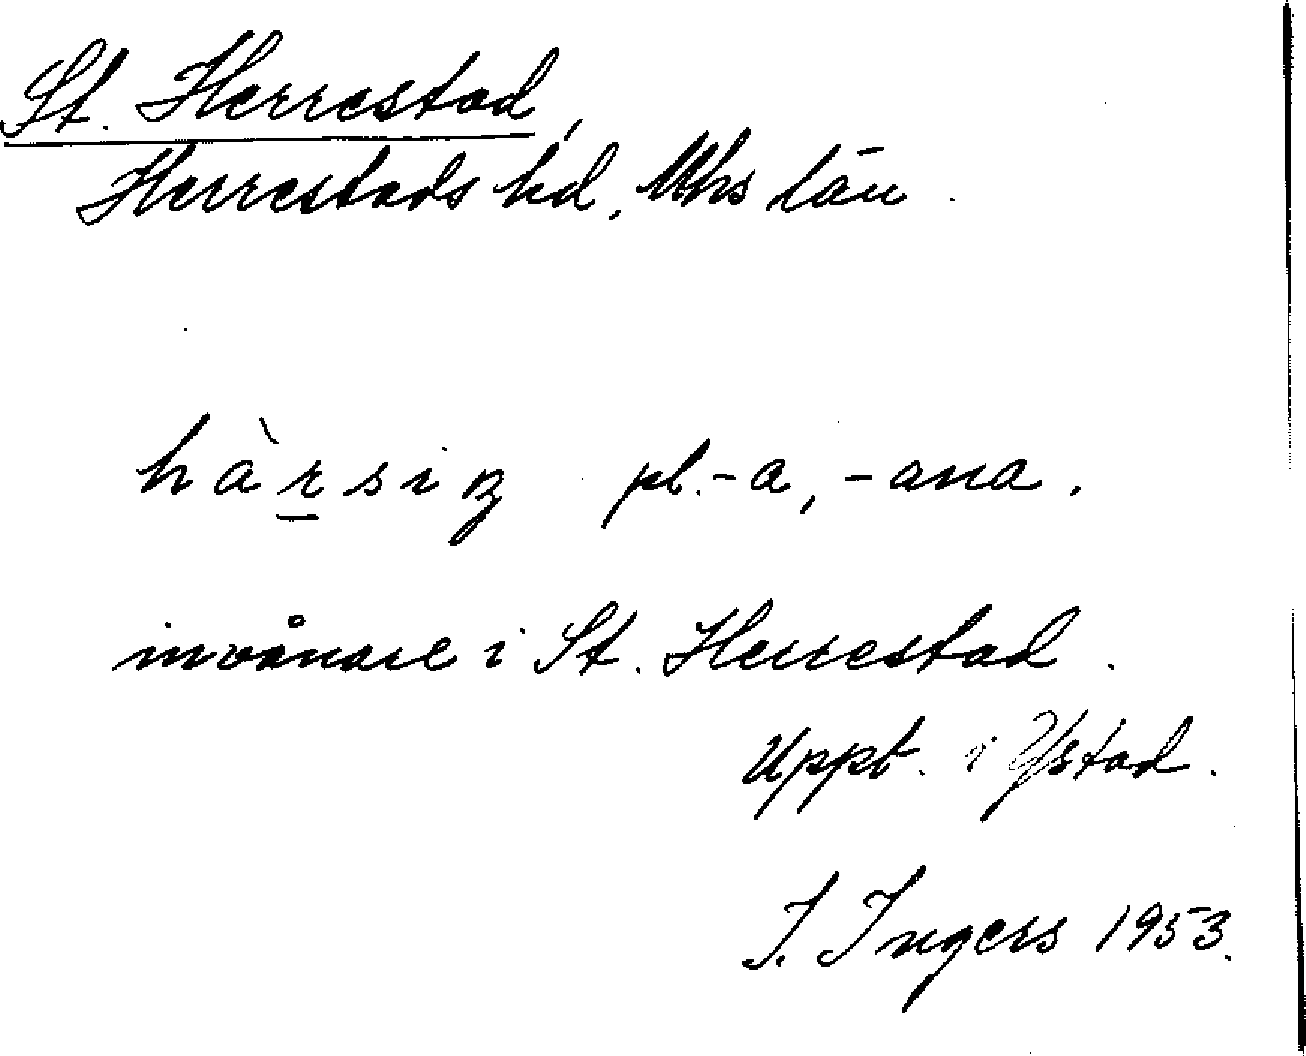 St. Herrestad,
Herrestads hd, Mhs län.
hàr̲siŋ pl. -a, -ana.
invånare i St. Herrestad.
Uppt. i Ystad.
I. Ingers 1953.